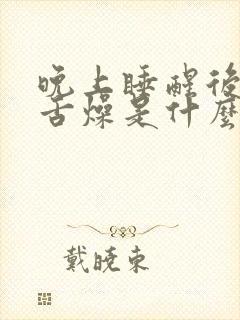 晚上睡醒後
舌燥是什麼
戴曉東